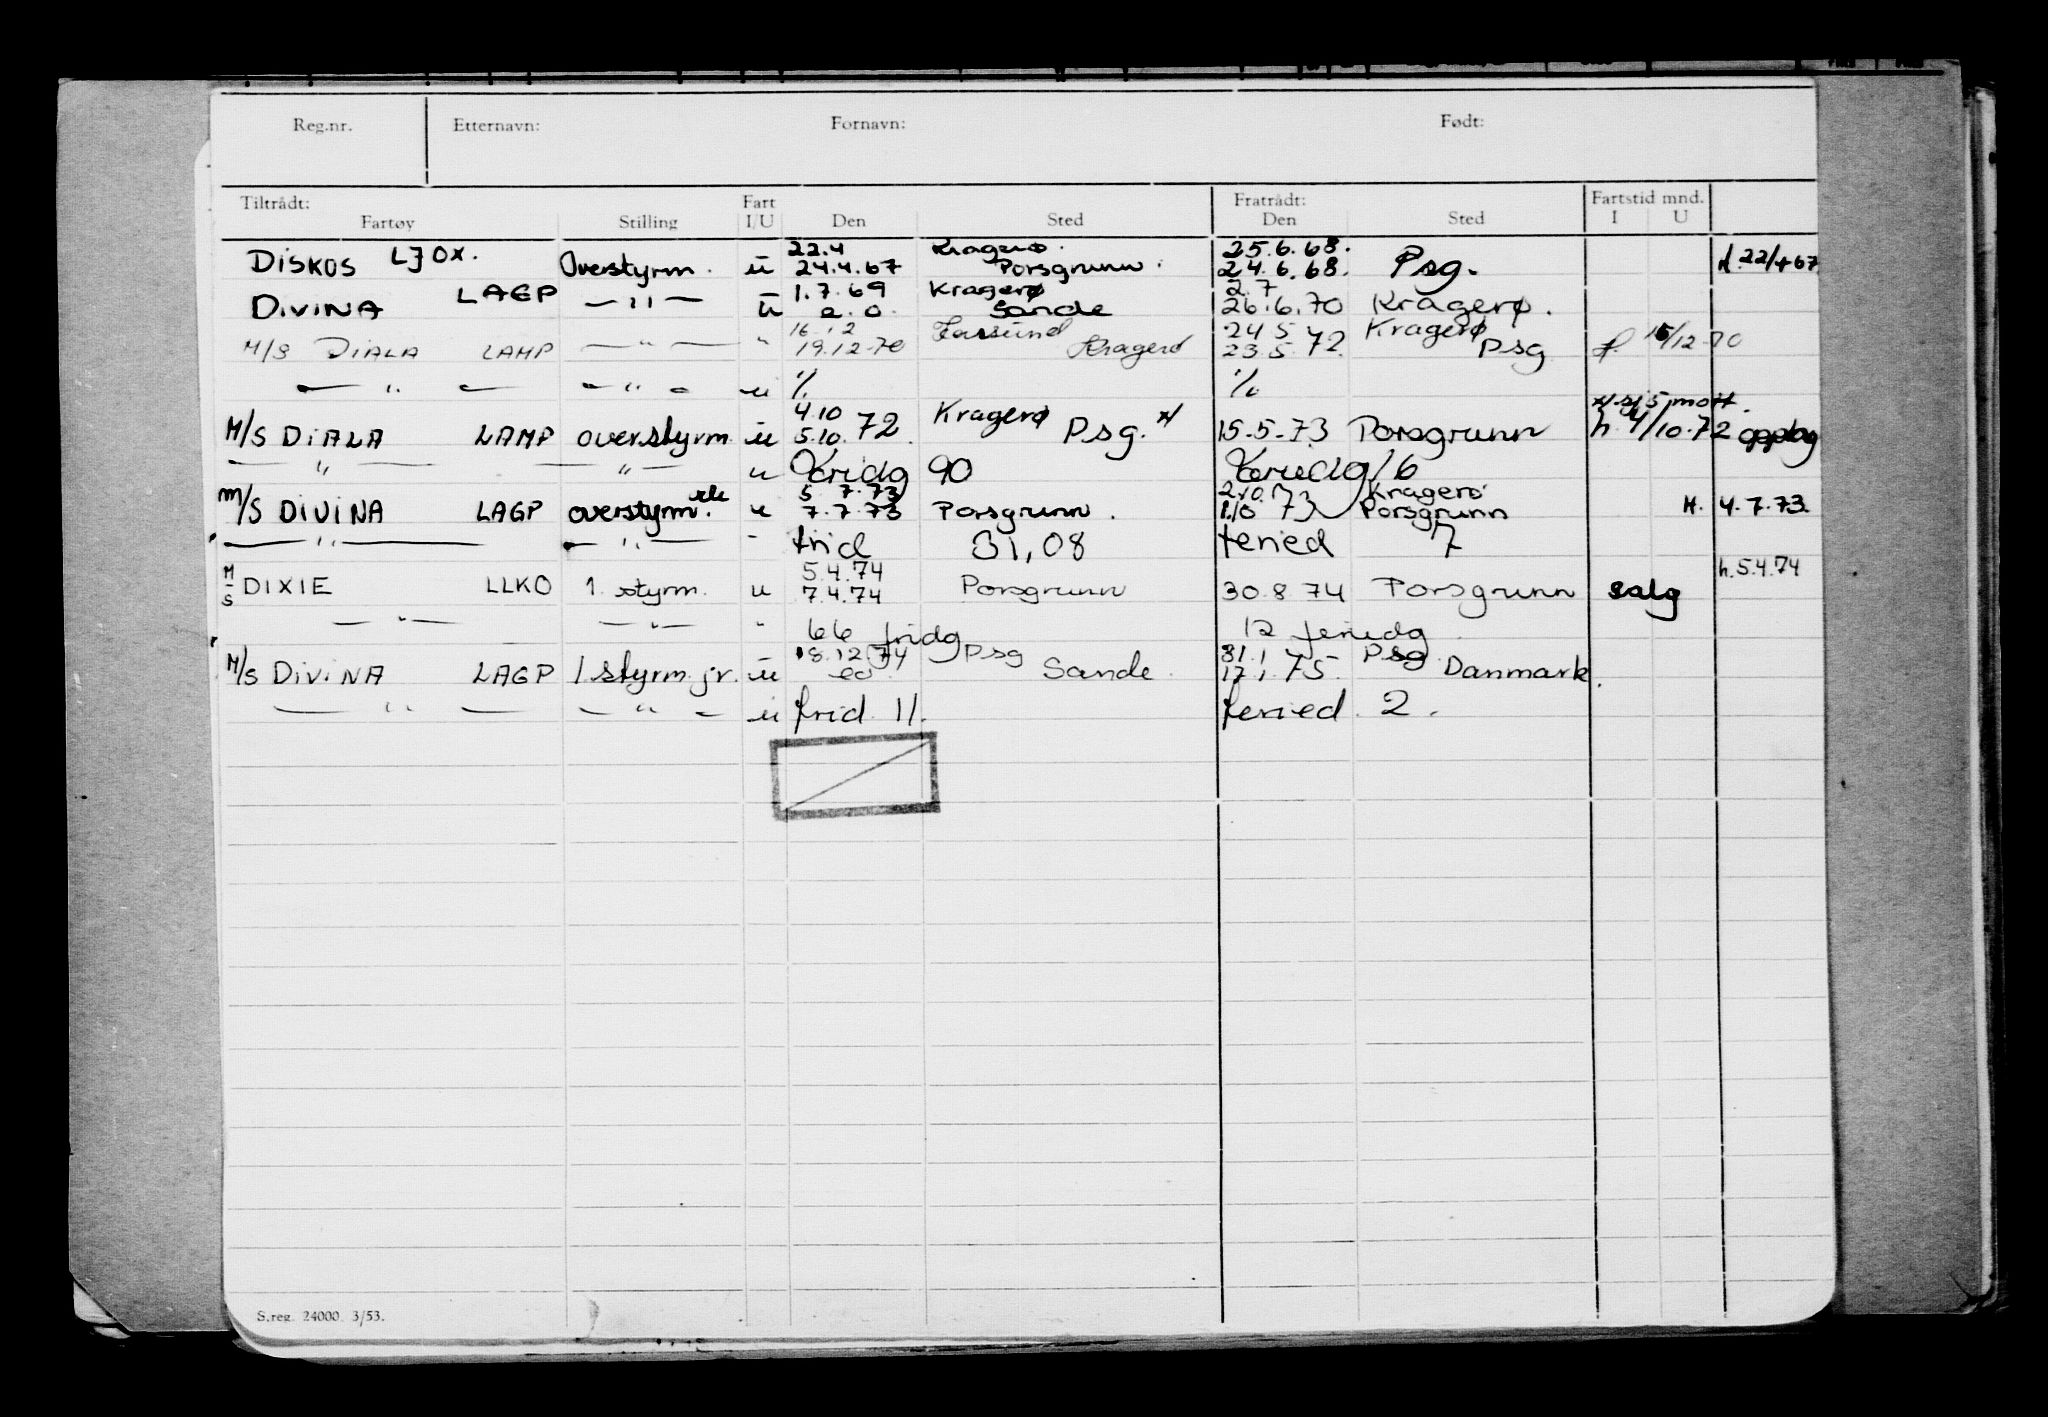 Reg.nr. Etternavn: Fornavn: Født:
Tiltrådt: Fart Fratrådt: Fartstid mnd.
Fartøy Stilling I/U Den Sted Den Sted I U
22.4 Kragerø. 25.6.68.
DISKOS LJOX. Overstyrm. u 24.4.67 Porsgrunn. 24.6.68. Psg. 22/4 67
LAGP 1.7.69 Kragerø 2.7
DIVINA — " — u a.o. Sande 26.6.70 Kragerø.
16.12 24 5 Kragerø
M/S DIALA LAMP — " — " 19.12.70 Kragerø 23.5.72 Psg f. 15/12 70
— " — — " — u % %
4.10 Kragerø
M/S DIALA LAMP overstyrm. u 5.10.72. Psg. x/ 15.5.73 Porsgrunn h. 4/10.72 opplag
— " — — " — u Fridg 90 Feriedg 16
5.7.73 2.10. Kragerø
M/S DIVINA LAGP overstyrm. u 7.7.73 Porsgrunn. 1.10 73 Porsgrunn H. 4.7.73
— " — — " — - frid 31,08 feried 7
5.4.74 h.5.4.74
M/S DIXIE LLKO 1. styrm. u 7.4.74 Porsgrunn 30.8.74 Porsgrunn salg
— " — — " — " 66 fridg 12 feriedg.
18.12.74 Psg 31.1 Psg
M/S DIVINA LAGP 1.styrm.jr. u Sande. 17.1.75. Danmark.
— " — — " — u frid. 11. feried. 2.
S.reg. 24000 3/53.